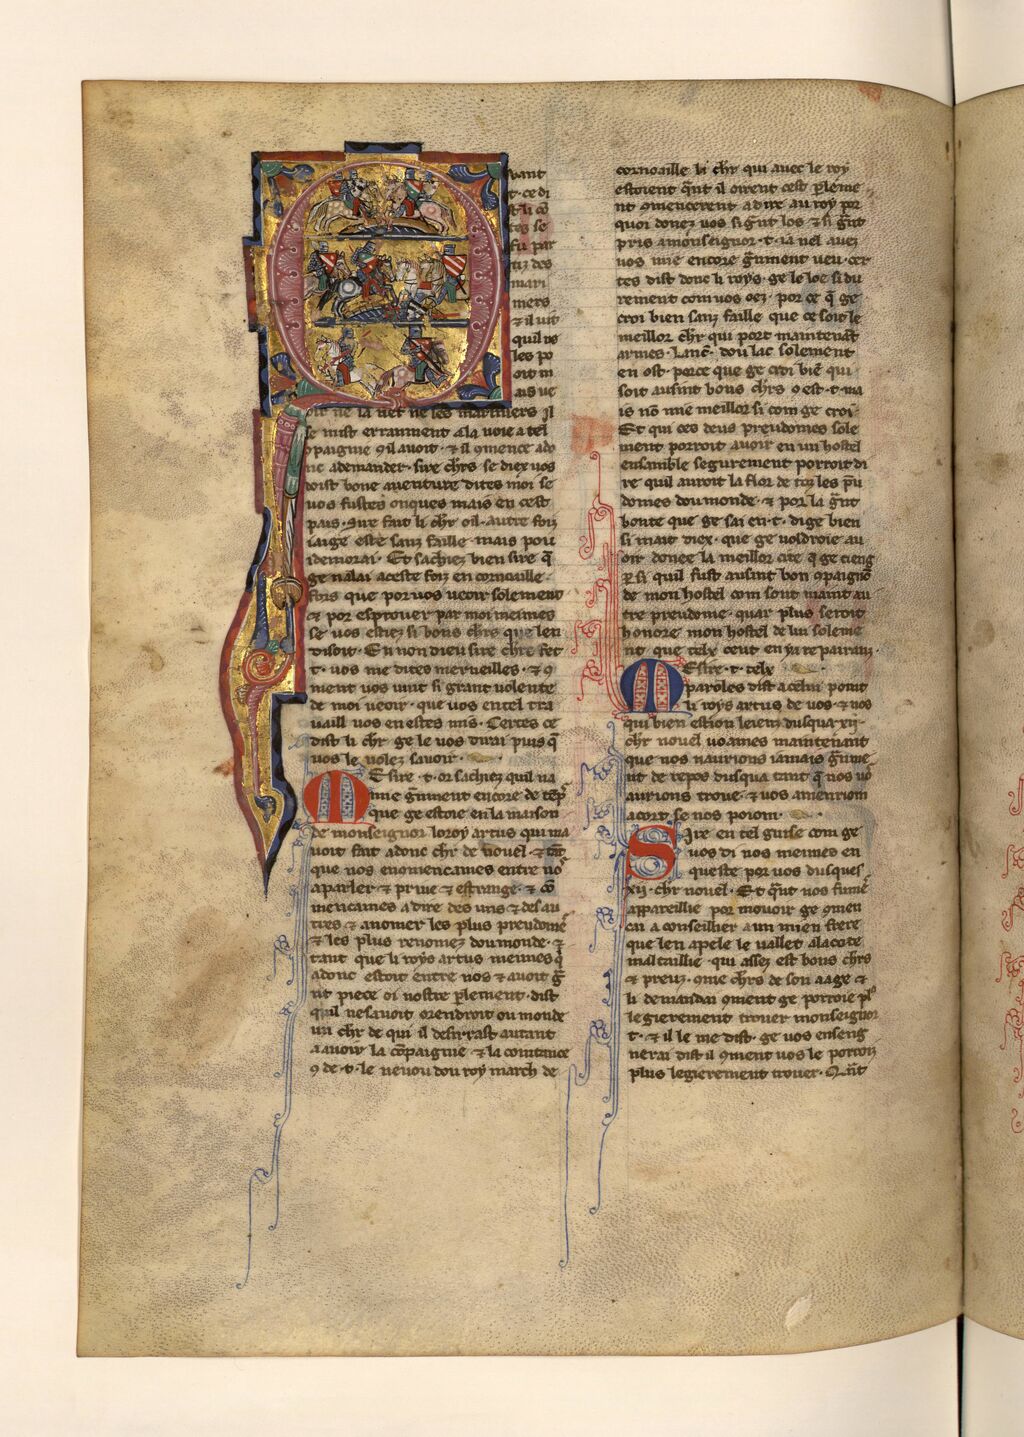 vant
t · ce di
st li cō
tez se
fu par
tiz des
mari
niers
⁊ il vit
quil ne
les po
oit m
ais ve
oir ne la nef ne les mariniers Il
se mist erraument ala voie a tel
ꝯpaignie ꝯ il avoit · ⁊ il ꝯmence ado
nc ademander · sire chꝛs · se diex vos
doist bone aventure dites moi se
vos fustes onques mais en cest
pais · Sire fait li chꝛ oil · autre foiz
iaige este sanz faille · mais pou
idemorai · Et sachiez bien sire q̄
ge nalai aceste foiz en cornoaille
fors que por vos veoir solement
⁊ por esprover par moi meimes
se vos estiez si bons chꝛs que len
disoit · En non dieu sire chꝛe fet
t · vos me dites merveilles · ⁊ ꝯ
ment vos vint si grant volente
de moi veoir · que vos entel tra
vaill vos en estes mis · Certes ce
dist li chꝛ · ge le vos dirai puis q̄
vos le volez savoir ·
Mesire · t · or sachiez quil na
mie g̃nment encore de tēp̃s
que ge estoie en la maison
de monseignor lo roy artus qui ma
voit fait adonc chꝛ de novel · ⁊ tāt
que nos enꝯmencames entre nos
aparler ⁊ prive ⁊ estrange · ⁊ cō
mencames a dire des uns ⁊ des au
tres ⁊ anomer les plus preudomes
⁊ les plus renomez dou monde · ⁊
tant que li roys artus meimes q̄
adonc estoit entre nos ⁊ avoit g̃
nt piece oi nostre ꝑlement · dist
quil ne savoit orendroit ou monde
un chꝛ de qui il desirrast autant
a avoir la cōpaignie ⁊ la cointance
ꝯ de · t · le nevou dou roy march de
cornoaille li chꝛ qui avec le roy
estoient q̃nt il oirent cest ꝑleme
nt ꝯmencerent a dire au roy por
quoi donez vos si g̃nt los ⁊ si g̃nt
pris a monseignor · t · ia nel avez
vos mie encore g̃nment veu · cer
tes dist donc li roys · ge le loe si du
rement com vos oez · por ce q̄ ge
croi bien sanz faille que ce soit le
meillor chꝛ qui port maintenāt
armes · Lanc̄ · dou lac solement
en ost · por ce que ge croi biē qui
soit ausint bons chꝛs ꝯ est · t · ma
is nō mie meillor si com ge croi ·
Et qui ces deus preudomes sole
ment porroit avoir en un hostel
ensamble segurement porroit di
re quil auroit la flor de toz les p̃u
domes dou monde · ⁊ por la g̃nt
bonte que ge sai en · t · dige bien
si mait diex · que ge voldroie au
oir donee la meillor cite q̄ ge tieng
ꝑ si quil fust ausint bon ꝯpaignō
de mon hostel com sont maint au
tre preudome · quar plus seroit
honore mon hostel de lui soleme
nt que telx cent en ya repairanz ·
Mesire · t · telx
paroles dist a celui point
li roys artus de vos · ⁊ nos
qui bien estion leienz dusqua · xii ·
chꝛ novel voames maintenant
que nos naurions iamais g̃nme
nt de repos dusqua tant q̄ nos vos
aurions trove · ⁊ vos amenriom
acort se nos poiom ·
Sire en tel guise com ge
vos di nos meimes en
queste por vos dusques
xij · chꝛ novel · Et q̃nt nos fumes
appareillie por movoir ge ꝯmen
cai a conseillier a un mien frere
que len apele le vallet ala cote
maltaillie · qui assez est bons chꝛs
⁊ preuz · ꝯme chꝛs de son aage ⁊
li demandai ꝯment ge porroie plus
legierement trover monseignor
t · ⁊ il le me dist · ge vos enseng
nerai dist il ꝯment vos le porroiz
plus legierement trover · Q̃nt